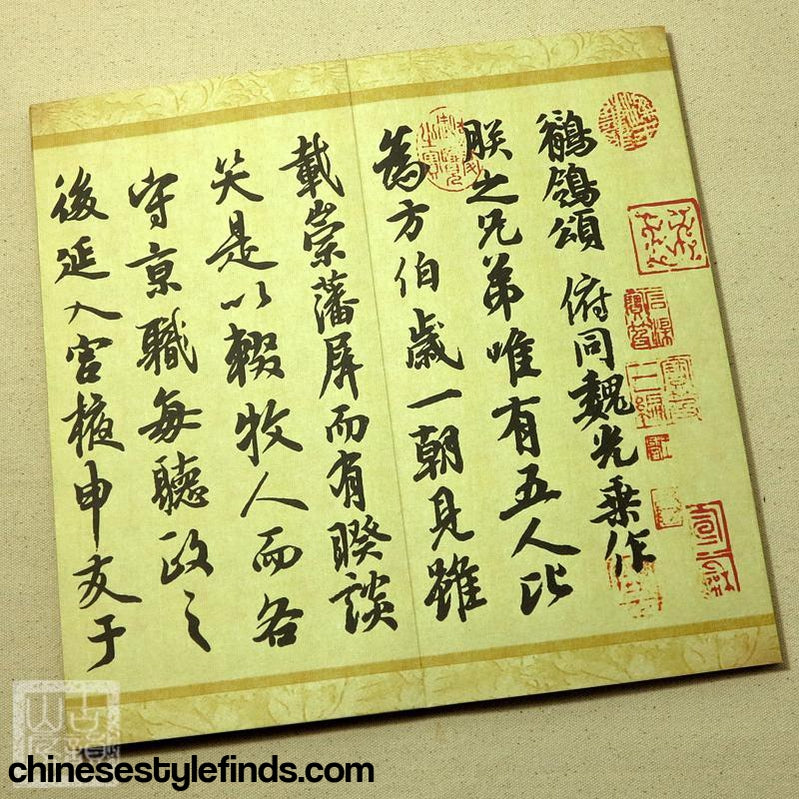 鶺鴒頌 俯同魏光乘作
朕之兄弟唯有五人比
為方伯歲一朝見雖
載崇藩屏而有睽談
笑是以輟牧人而各
守京職每聽政之
後延入宮掖申友于
chinesestylefinds.com